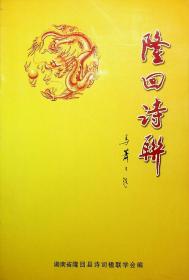 隆回诗联
湖南省隆回县诗词楹联学会编